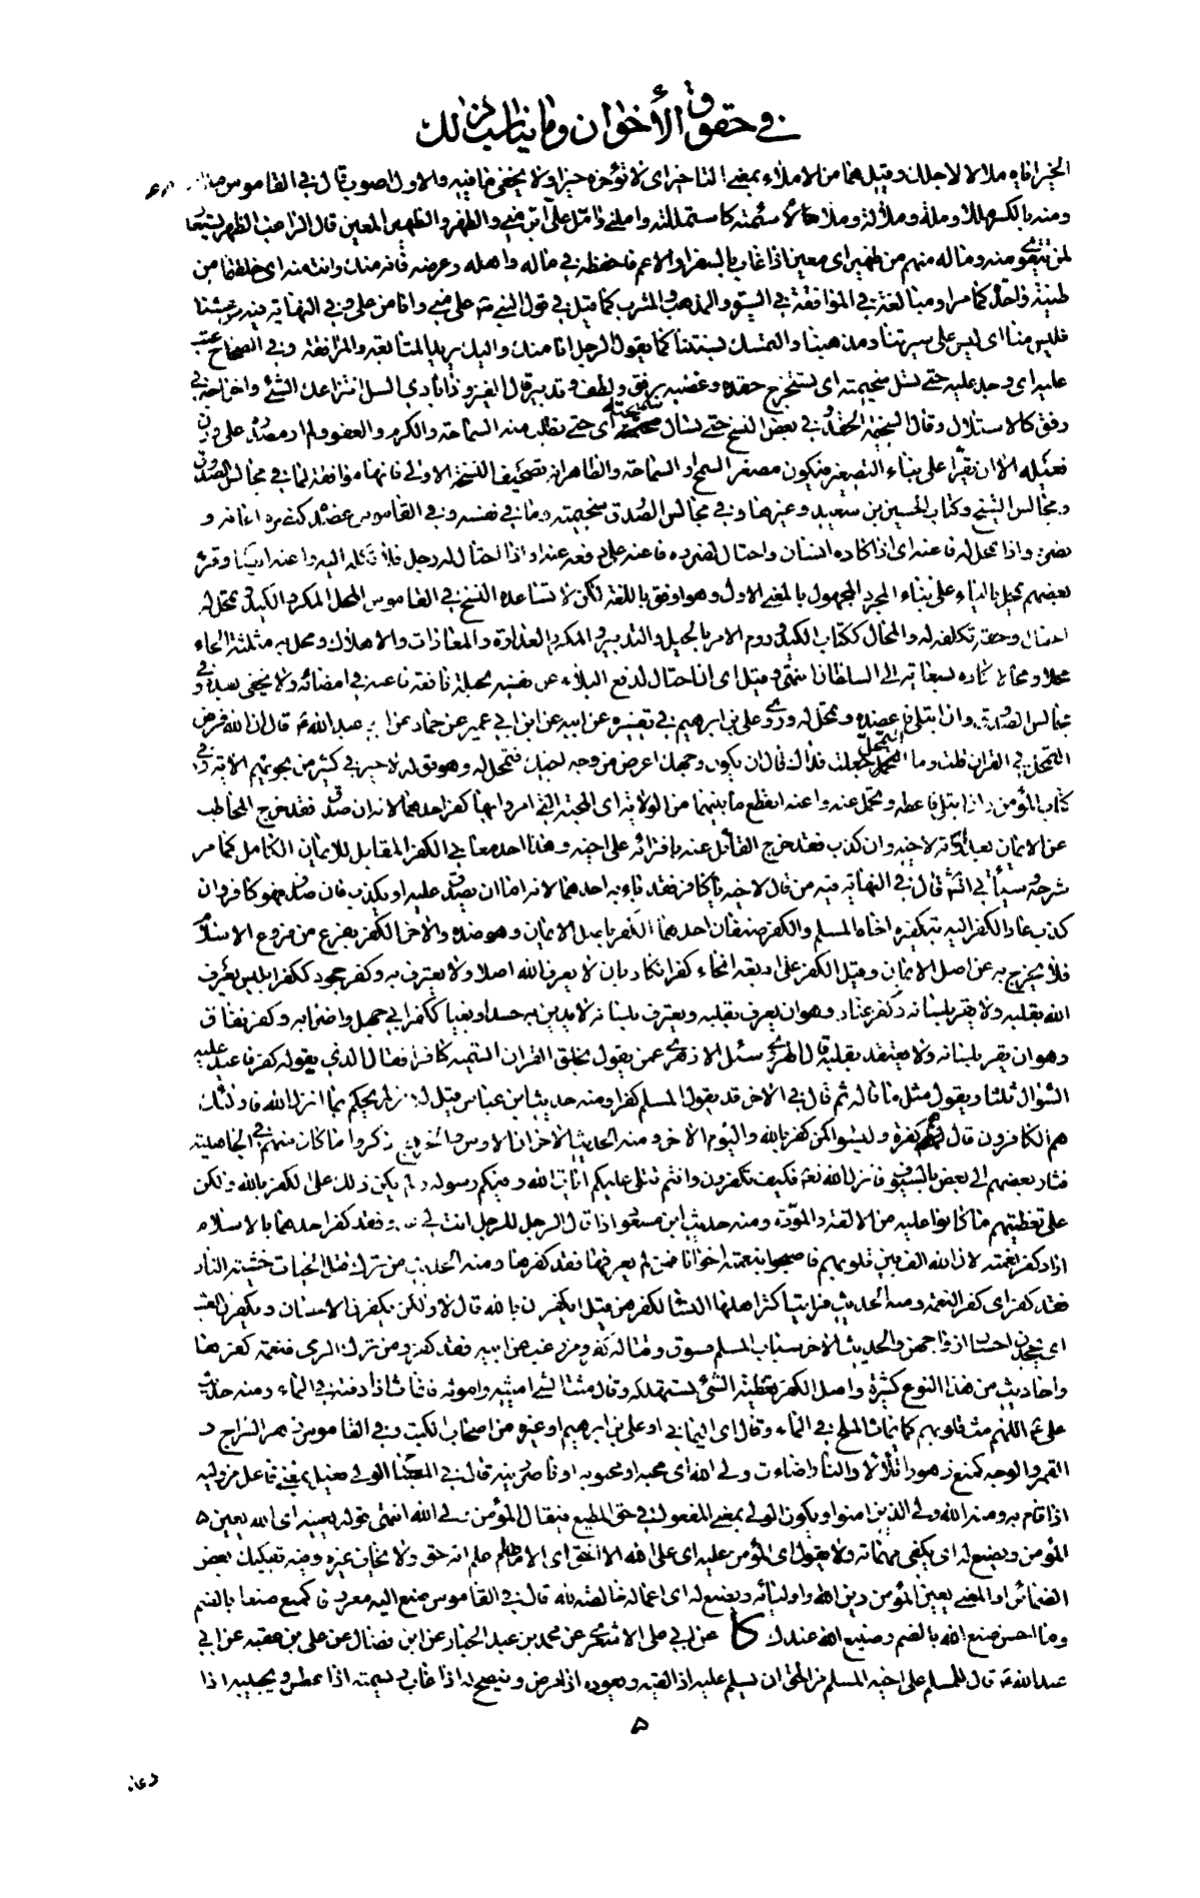 في حقوق الأخوان وما يناسب ذلك
الخير فانه ملالا لاجلك وقيل هما من الاملاء بمعنى التاخير اى لا تؤخره خيرا ولا يخفى ما فيه والاول اصوب قال في القاموس
ومنه بالكسر مللا وملة وملالة وملالا سئمته كاستمللته واملني وامل علي ابرمني والظهر والظهير المعين قال الراغب الظهر يستعار
لمن يتقوى به وماله منهم من ظهير اى معين اذا غاب بالسفر او الاعم فاحفظه في ماله واهله وعرضه فانه منك وانت منه اى خلقتما من
طينة واحدة كما مر او مبالغة في الموافقة في السيرة والمذهب والمشرب كما قيل في قول النبي ص علي مني وانا من علي وفي النهاية فيه من غشنا
فليس منا اى ليس على سيرتنا ومذهبنا والتمسك بسنتنا كما يقول الرجل انا منك واليك يريد المتابعة والموافقة وفي الصحاح عتب
عليه اى وجد عليه حتى تسل سخيمته اى تستخرج حقده وغضبه برفق ولطف وتدبير قال الفيروزآبادي السل انتزاعك الشئ واخراجه في
رفق كالاستلال وقال السخيمة الحقد وفي بعض النسخ حتى تسأل سميحته اى حتى تطلب منه السماحة والكرم والعفو ولم ار مصدرا على وزن
فعيلة الا ان يقرأ على بناء التصغير فيكون مصغر السمح او السماحة والظاهر انه تصحيف النسخة الاولى فانها موافقة لما في مجالس الصدوق
ومجالس الشيخ وكتاب الحسين بن سعيد وغيرها وفي مجالس الصدوق سخيمته وما في نفسه وفي القاموس عضده كنصره اعانه و
نصره واذا تمحل له فاعنه اى اذا كاده انسان واحتال لضرره فاعنه على دفعه عنه او اذا احتال له رجل فلا تكله اليه واعنه ايضا وقرئ
بعضهم يمحل بالياء على بناء المجرد المجهول بالمعنى الاول وهو اوفق باللغة لكن لا تساعده النسخ في القاموس المحل المكر والكيد وتمحل له
احتال وحقه تكلفه له والمحال ككتاب الكيد وروم الامر بالحيل والتدبير والمكر والعداوة والمعاداة والاهلاك ومحل به مثلثة الحاء
محلا ومحالا كاده بسعاية الى السلطان انتهى وقيل اى ان احتال لدفع البلاء عن نفسه بحيلة نافعة فاعنه في امضائه ولا يخفى بعده وفي
مجالس الصدوق واذا ابتلى فاعضده وتمحل له وروى علي بن ابراهيم في تفسيره عن ابيه عن ابن ابي عمير عن حماد عن ابي عبد الله ع قال ان الله فرض
التمحل في القران قلت وما التمحل جعلت فداك قال ان يكون وجهك اعرض من وجه اخيك فتمحل له وهو قوله لا خير في كثير من نجويهم الاية وفي
كتاب المؤمن واذا ابتلى فاعطه وتحمل عنه واعنه انقطع ما بينهما من الولاية اى المحبة التي امروا بها كفر احدهما لانه ان صدق فقد خرج المخاطب
عن الايمان بعداوته لاخيه وان كذب فقد خرج القائل عنه بافترائه على اخيه وهذا احد معاني الكفر المقابل للايمان الكامل كما مر
شرحه وسيأتي انشاء قال في النهاية فيه من قال لاخيه يا كافر فقد باء به احدهما لانه اما ان يصدق عليه او يكذب فان صدق فهو كافر وان
كذب عاد الكفر اليه بتكفيره اخاه المسلم والكفر صنفان احدهما الكفر باصل الايمان وهو ضده والاخر الكفر بفرع من فروع الاسلام
فلا يخرج به عن اصل الايمان وقيل الكفر على اربعة انحاء كفر انكار بان لا يعرف الله اصلا ولا يعترف به وكفر جحود ككفر ابليس يعرف
الله بقلبه ولا يقر بلسانه وكفر عناد وهو ان يعرف بقلبه ويعترف بلسانه ولا يدين به حسدا وبغيا ككفر ابي جهل واضرابه وكفر نفاق
وهو ان يقر بلسانه ولا يعتقد بقلبه قال الهروي سئل الازهرى عمن يقول بخلق القران انسميه كافرا فقال الذي يقوله كفر فاعيد عليه
السؤال ثلثا ويقول مثل ما قال ثم قال في الاخر قد يقول المسلم كفرا ومنه حديث ابن عباس قيل له ومن لم يحكم بما انزل الله فاولئك
هم الكافرون قال هم كفرة وليسوا كمن كفر بالله واليوم الاخر ومنه الحديث الاخر ان الاوس والخزرج ذكروا ما كان منهم في الجاهلية
فثار بعضهم الى بعض بالسيوف فانزل الله تعالى فكيف تكفرون وانتم تتلى عليكم آيات الله وفيكم رسوله ولم يكن ذلك على الكفر بالله ولكن
على تغطيتهم ما كانوا عليه من الالفة والمودة ومنه حديث ابن مسعود اذا قال الرجل للرجل انت لي عدو فقد كفر احدهما بالاسلام
اراد كفر نعمته لان الله الف بين قلوبهم فاصبحوا بنعمته اخوانا فمن لم يعرفها فقد كفرها ومنه الحديث من ترك قتل الحيات خشية النار
فقد كفر اى كفر النعمة ومنه الحديث فرأيت اكثر اهلها النساء لكفرهن قيل ايكفرن بالله قال لا ولكن يكفرن الاحسان ويكفرن العشير
اى يجحدن احسان ازواجهن والحديث الاخر سباب المسلم فسوق وقتاله كفر ومن رغب عن ابيه فقد كفر ومن ترك الرمى فنعمة كفرها
واحاديث من هذا النوع كثيرة واصل الكفر تغطية الشئ تستهلكه وقال مثت الشئ اميثه واموثه فانماث اذا دفته في الماء ومنه حديث
علي ع اللهم مث قلوبهم كما يماث الملح في الماء وقال اى اليماني او علي بن ابراهيم او غيره من اصحاب الكتب وفي القاموس زهر السراج و
القمر والوجه كمنع زهورا تلألأ والنار اضاءت ولي الله اى محبه او محبوبه او ناصر دينه قال في المصباح الولي فعيل بمعنى فاعل من وليه
اذا قام به ومنه الله ولي الذين امنوا ويكون الولي بمعنى المفعول في حق المطيع فيقال المؤمن ولي الله انتهى قوله يعينه اى الله يعين
المؤمن ويصنع له اى يكفي مهماته ولا يقول اى المؤمن عليه اى على الله الا الحق اى الا ما علم انه حق ولا يخاف غيره وفيه تفكيك بعض
الضمائر او المعنى يعين المؤمن دين الله واوليائه ويصنع له اى اعماله خالصة لله قال في القاموس صنع اليه معروفا كمنع صنعا بالضم
وما احسن صنع الله بالضم وصنيع الله عندك كا عن ابي علي الاشعرى عن محمد بن عبد الجبار عن ابن فضال عن علي بن عقبه عن ابي
عبد الله ع قال للمسلم على اخيه المسلم من الحق ان يسلم عليه اذا لقيه ويعوده اذا مرض وينصح له اذا غاب ويسمته اذا عطس ويجيبه اذا
دعاه